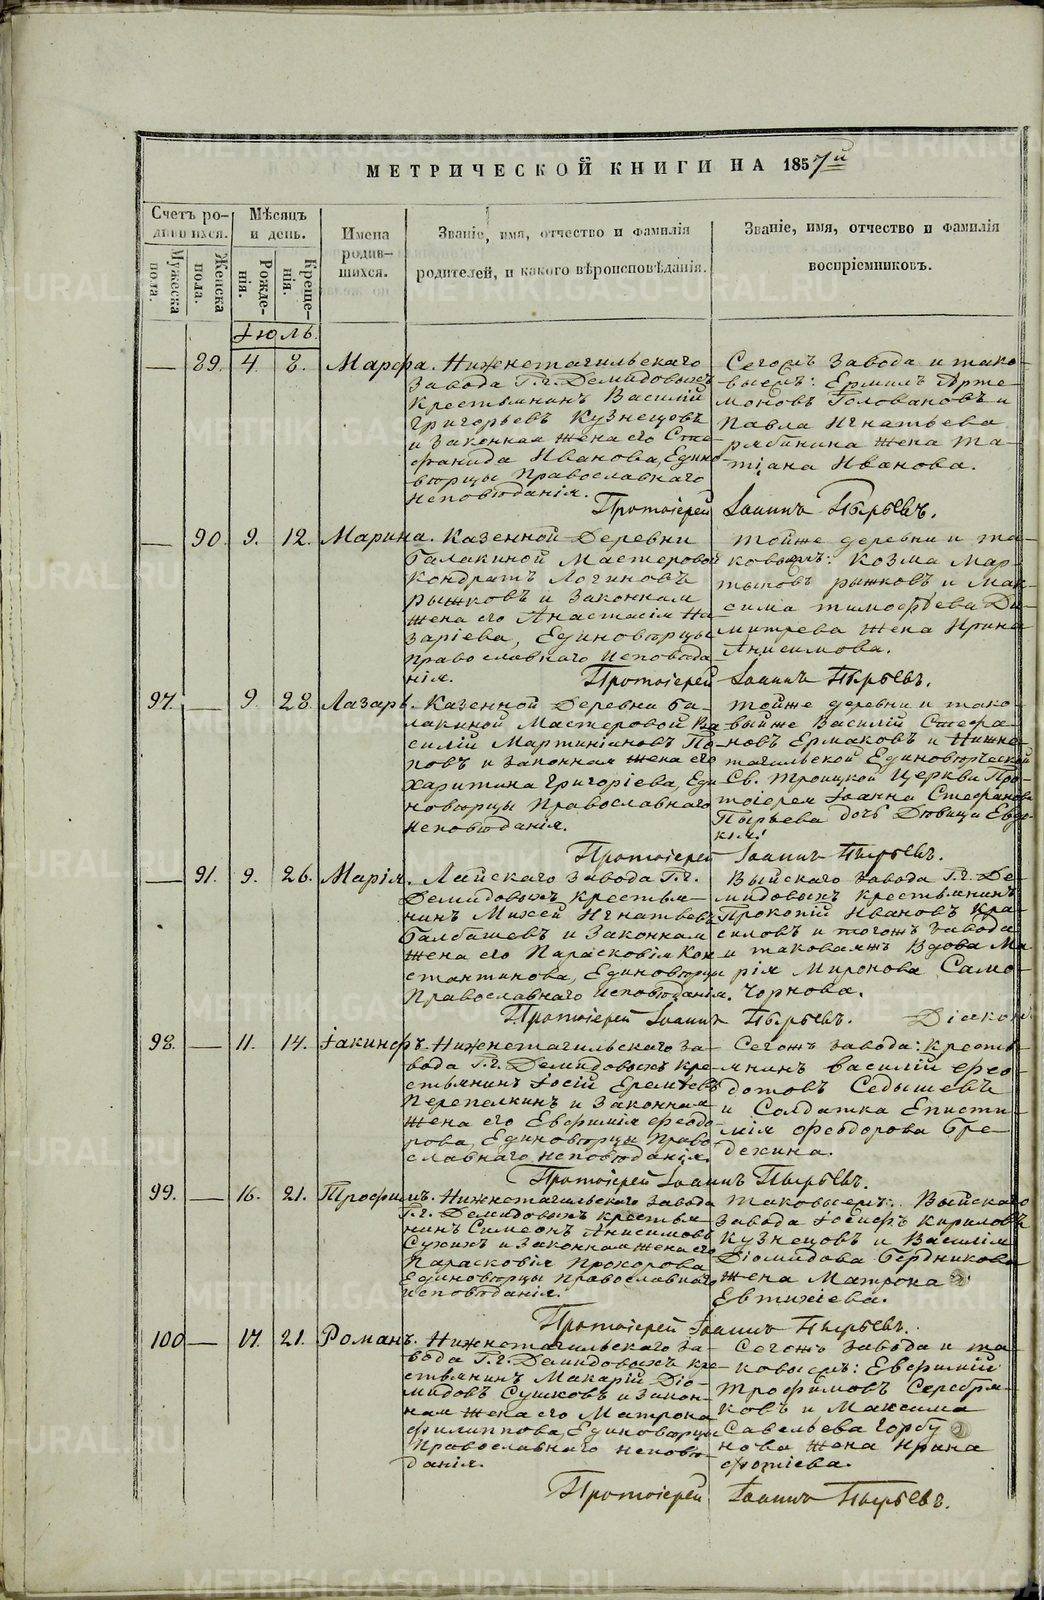 МЕТРИЧЕСКОЙ КНИГИ НА 1857й
Счетъ ро-
дившихся.
Мужеска пола.
Женска пола.
Мѣсяцъ
и день.
Рожде-
нія.
Креще-
нія.
Имена
родив-
шихся.
Званіе, имя, отчество и фамилія
родителей, и какого вѣроисповѣданія.
Званіе, имя, отчество и фамилія
воспріемниковъ.
Іюль.
— 89. 4. 8. Марфа.
Нижнетагильскаго
завода Г.г. Демидовыхъ
крестьянинъ Василій
Григорьевъ Кузнецовъ
и законная жена его Сте-
фанида Иванова, Едино-
вѣрцы Православнаго
исповѣданія.
Сегожъ завода и тако-
выежъ: Ермилъ Арте-
моновъ Головановъ и
Павла Игнатьева
Рябинина жена Та-
тіана Иванова.
Протоіерей Іоаннъ Пырьевъ.
— 90. 9. 12. Марина.
Казенной Деревни
Балакиной Мастеровой
Кондратъ Логиновъ
Рыжковъ и законная
жена его Анастасія На-
заріева, Единовѣрцы
Православнаго исповѣда-
нія.
Тойже деревни и та-
ковыежъ: Козма Мар-
тыновъ Рыжковъ и Мак-
сима Тимофѣева Ди-
митрева жена Ирина
Анисимова.
Протоіерей Іоаннъ Пырьевъ.
97. — 9. 28. Лазарь.
Казенной Деревни Ба-
лакиной Мастеровой Ва-
силій Мартиніановъ По-
повъ и законная жена его
Харитина Григоріева, Еди-
новѣрцы Православнаго
исповѣданія.
Тойже деревни и тако-
выйже Василій Стефа-
новъ Ермаковъ и Нижне-
тагильской Единовѣрческой
Св. Троицкой Церкви Про-
тоіерея Іоанна Стефанова
Пырьева дочь Дѣвица Евдо-
кія.
Протоіерей Іоаннъ Пырьевъ.
— 91. 9. 26. Марія.
Лайскаго завода Г.г.
Демидовыхъ крестья-
нинъ Михей Игнатьевъ
Балбашевъ и законная
жена его Парасковія Кон-
стантинова, Единовѣрцы
Православнаго исповѣданія.
Выйскаго завода Г.г. Де-
мидовыхъ крестьянинъ
Прокопій Ивановъ Кра-
силовъ и тогожъ завода
и таковаяжъ Вдова Ма-
рія Миронова Само-
чорнова.
Протоіерей Іоаннъ Пырьевъ. Діакон
98. — 11. 14. Іакинфъ.
Нижнетагильскаго за-
вода Г.г. Демидовыхъ кре-
стьянинъ Іосій Еремѣевъ
Перепелкинъ и законная
жена его Евфимія Феодо-
рова, Единовѣрцы Право-
славнаго исповѣданія.
Сегожъ завода: кресть-
янинъ Василій Фео-
дотовъ Седышевъ
и Солдатка Еписти-
мія Феодорова Бре-
дехина.
Протоіерей Іоаннъ Пырьевъ.
99. — 16. 21. Трофимъ.
Нижнетагильскаго завода
Г.г. Демидовыхъ крестья-
нинъ Симеонъ Анисимовъ
Сухихъ и законная жена его
Парасковія Прохорова
Единовѣрцы Православнаго
исповѣданія.
Таковыежъ: Выйскаго
завода Іосифъ Кириловъ
Кузнецовъ и Василія
Діомидова Бердникова
жена Матрона
Евтихіева.
Протоіерей Іоаннъ Пырьевъ.
100 — 17. 21. Романъ.
Нижнетагильскаго за-
вода Г.г. Демидовыхъ кре-
стьянинъ Макарій Діо-
мидовъ Сушковъ и закон-
ная жена его Матрона
Филиппова, Единовѣрцы
Православнаго исповѣ-
данія.
Сегожъ завода и та-
ковыежъ: Евфимій
Трофимовъ Серебря-
ковъ и Максима
Савельева Горбу
нова жена Ирина
Фотіева.
Протоіерей Іоаннъ Пырьевъ.
METRIKI.GASO-URAL.RU